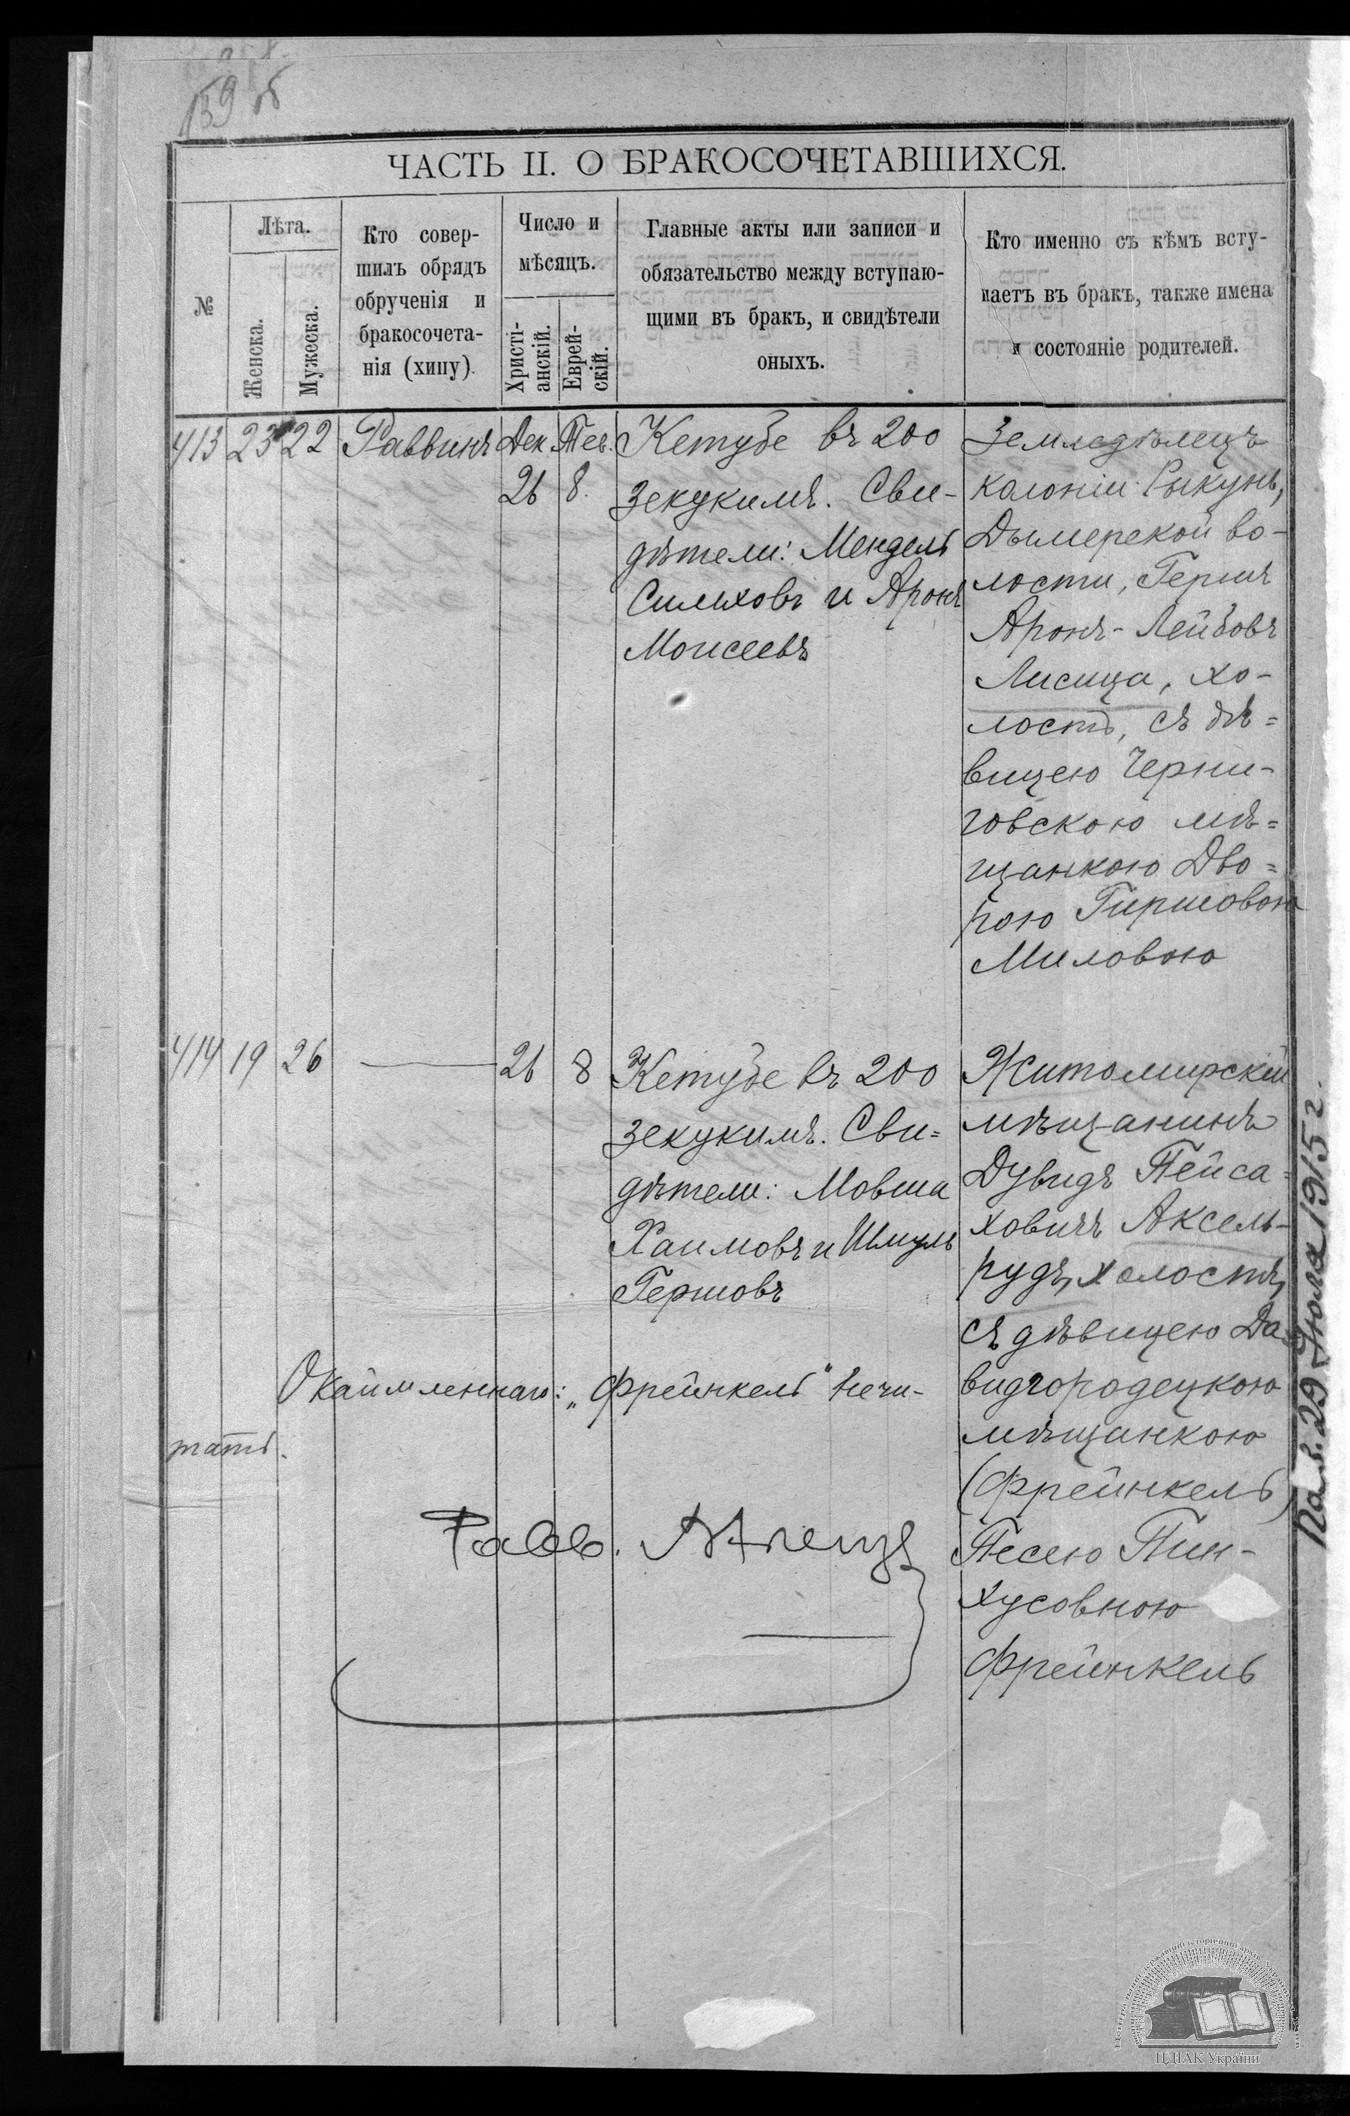 159 об
ЧАСТЬ II. О БРАКОСОЧЕТАВШИХСЯ.
№
Лѣта.
Женска.
Мужеска.
Кто совер-
шилъ обрядъ
обрученія и
бракосочета-
нія (хипу).
Число и
мѣсяцъ.
Христі-
анскій.
Еврей-
скій.
Главные акты или записи и
обязательство между вступаю-
щими въ бракъ, и свидѣтели
оныхъ.
Кто именно съ кѣмъ всту-
паетъ въ бракъ, также имена
и состояніе родителей.
413 23 22 Раввинъ Дек. Тев.
26 8.
Кетубе въ 200
зекукимъ. Сви-
дѣтели: Мендель
Симховъ и Аронъ
Моисеевъ
Земледѣлецъ
колоніи Рыкунь,
Дымерской во-
лости, Герш
Аронъ-Лейбовъ
Лисица, хо-
лостъ, съ дѣ=
вицею Черни-
говскою мѣ=
щанкою Дво=
рою Гиршовою
Миловою
414 19 26 — 26 8
Кетубе въ 200
зекукимъ. Сви=
дѣтели: Мовша
Хаимовъ и Шмуль
Гершовъ
Житомирскій
мѣщанинъ
Дувидъ Пейса-
ховичъ Аксель-
рудъ, холостъ,
съ дѣвицею Да-
видгородецкою
мѣщанкою
(Фрейнкель)
Песею Пин-
хусовною
Фрейнкель
Окаймленнаго: „Фрейнкель" не чи-
тать.
Равв.
29 Июля 1915 г.
ЦДІАК України